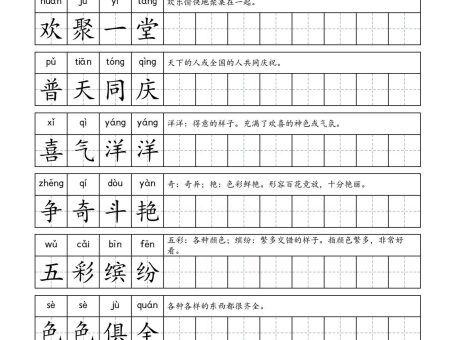 huān jù yì táng 欢乐愉快地聚集在一起。
欢聚一堂
pǔ tiān tóng qìng 天下的人或全国的人共同庆祝。
普天同庆
xǐ qì yáng yáng 洋洋：得意的样子。充满了欢喜的神色或气氛。
喜气洋洋
zhēng qí dòu yàn 奇：奇异；艳：色彩鲜艳。形容百花竞放，十分艳丽。
争奇斗艳
wǔ cǎi bīn fēn 五彩：各种颜色；缤纷：繁多交错的样子。指颜色繁多，非常好
看。
五彩缤纷
sè sè jù quán 各种各样的东西都很齐全。
色色俱全